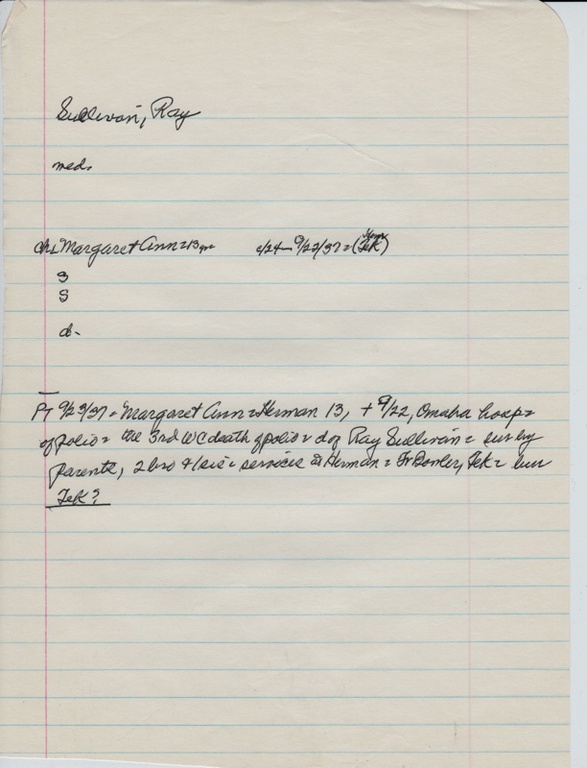 Sullivan, Ray
med.
ch: Margaret Ann = 13 yr c/24 - 9/22/37 = (Tek) Herm
s
s
d-
PT 9/23/37 = Margaret Ann = Herman 13, + 9/22, Omaha hosp =
of polio = the 3rd WC death of polio = d of Ray Sullivan = sur by
parents, 2 bro + 1 sis = services at Herman = Fr Tek = bur
Tek?